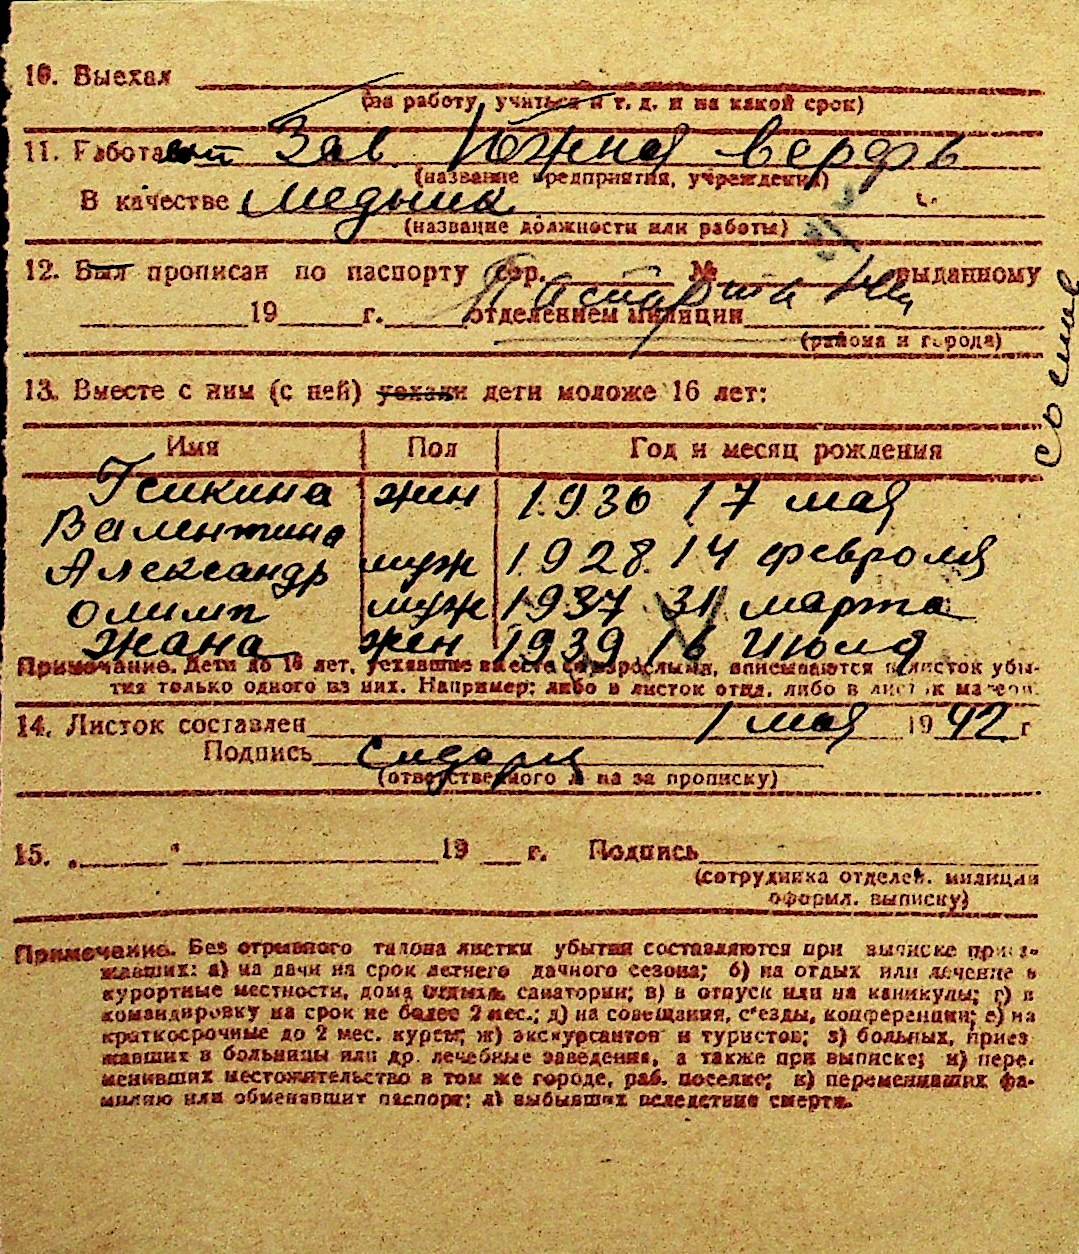 10. Выехал
(на работу, учиться и т. д. и на какой срок)
11. Работает Зав Южная верфь
(название предприятия, учреждения)
В качестве Медника
(название должности или работы)
12. Был прописан по паспорту сер. № выданному
Паспорта
19 г. отделением милиции
(района и города)
со слов
13. Вместе с ним (с ней) уехали дети моложе 16 лет:
Имя Пол Год и месяц рождения
жен 1930 17 мая
Валентина
Александр муж 1928 14 февроля
Олимп муж 1937 31 марта
Жана жен 1939 16 Июля
Примечание. Дети до 16 лет, уехавшие вместе со взрослыми, вписываются в листок убы-
тия только одного из них. Например: либо в листок отца, либо в листок матери.
14. Листок составлен 1 мая 1942 г
Подпись
(ответственного л на за прописку)
15. „ “ 19 г. Подпись
(сотрудника отделен. милиции
оформл. выписку)
Примечание. Без отрывного талона листки убытия составляются при выписке приез-
жавших: а) на дачи на срок летнего дачного сезона; б) на отдых или лечение в
курортные местности, дома отдыха, санатории; в) в отпуск или на каникулы; г) в
командировку на срок не более 2 мес.; д) на совещания, с'езды, конференции; е) на
краткосрочные до 2 мес. курсы; ж) экскурсантов и туристов; з) больных, приез
жавших в больницы или др. лечебные заведения, а также при выписке; и) пере-
менивших местожительство в том же городе, раб. поселке; к) переменивших фа-
милию или обменявшит паспорт; л) выбывших вследствие смерти.